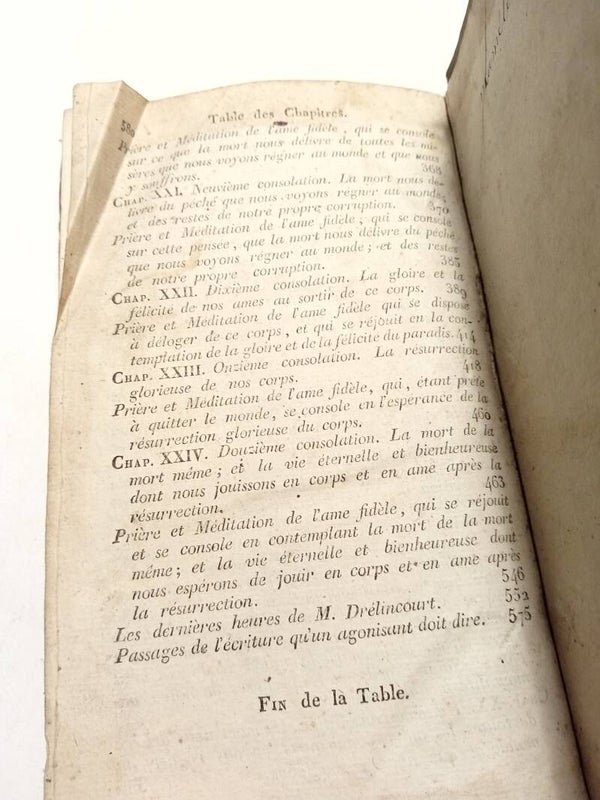 580
Table des Chapitres.
Prière et Méditation de l'ame fidèle, qui se console
sur ce que la mort nous délivre de toutes les mi-
sères que nous voyons régner au monde et que nous
y souffrons. 368
CHAP. XXI. Neuvième consolation. La mort nous dé-
livre du péché que nous voyons régner au monde,
et des restes de notre propre corruption. 370
Prière et Méditation de l'ame fidèle, qui se console
sur cette pensée, que la mort nous délivre du péché
que nous voyons régner au monde; et des restes
de notre propre corruption. 385
CHAP. XXII. Dixième consolation. La gloire et la
félicité de nos ames au sortir de ce corps. 389
Prière et Méditation de l'ame fidèle qui se dispose
à déloger de ce corps, et qui se réjouit en la con-
templation de la gloire et de la félicité du paradis. 414
CHAP. XXIII. Onzième consolation. La résurrection
glorieuse de nos corps. 418
Prière et Méditation de l'ame fidèle, qui, étant prête
à quitter le monde, se console en l'esperance de la
résurrection glorieuse du corps. 460
CHAP. XXIV. Douzième consolation. La mort de la
mort même; et la vie éternelle et bienheureuse
dont nous jouissons en corps et en ame après la
résurrection. 463
Prière et Méditation de l'ame fidèle, qui se réjouit
et se console en contemplant la mort de la mort
même; et la vie éternelle et bienheureuse dont
nous espérons de jouir en corps et en ame après
la résurrection. 546
Les dernières heures de M. Drélincourt. 552
Passages de l'écriture qu'un agonisant doit dire. 575
FIN de la Table.